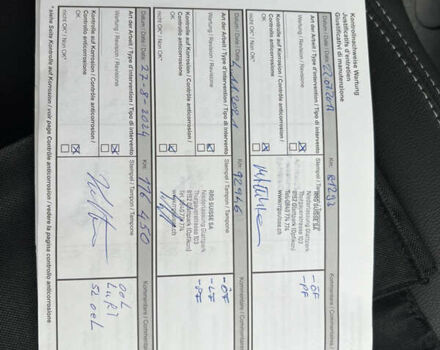 Kontrollnachweise Wartung
Justificatifs d'entretien
Giustificativi di manutenzione
Datum / Date / Data: Km: Kommentare / Commentaires / Commenti
Art der Arbeit / Type d'intervention / Tipo di intervento Stempel / Tampon / Tampone
Wartung / Révision / Revisione
Kontrolle auf Korrosion / Contrôle anticorrosion /
Controllo anticorrosione
OK
nicht OK* / Non OK*
RRG SUISSE SA
Niederlassung Glattpark
Thurgauerstrasse 103
8152 Glattpark (Opfikon)
www.rrgsuisse.ch
- ÖF
- PF
Datum / Date / Data: Km: 92946 Kommentare / Commentaires / Commenti
Art der Arbeit / Type d'intervention / Tipo di intervento Stempel / Tampon / Tampone
Wartung / Révision / Revisione
Kontrolle auf Korrosion / Contrôle anticorrosion /
Controllo anticorrosione
OK
nicht OK* / Non OK*
RRG SUISSE SA
Niederlassung Glattpark
Thurgauerstrasse 103
8152 Glattpark (Opfikon)
- ÖF
- LF
- PF
Datum / Date / Data: 27-8-2024 Km: 116 450 Kommentare / Commentaires / Commenti
Art der Arbeit / Type d'intervention / Tipo di intervento Stempel / Tampon / Tampone
Wartung / Révision / Revisione
Kontrolle auf Korrosion / Contrôle anticorrosion /
Controllo anticorrosione
OK
nicht OK* / Non OK*
OEL
LUFT
5L OEL
* siehe Seite Kontrolle auf Korrosion / voir page Contrôle anticorrosion / vedere la pagina controllo anticorrosione